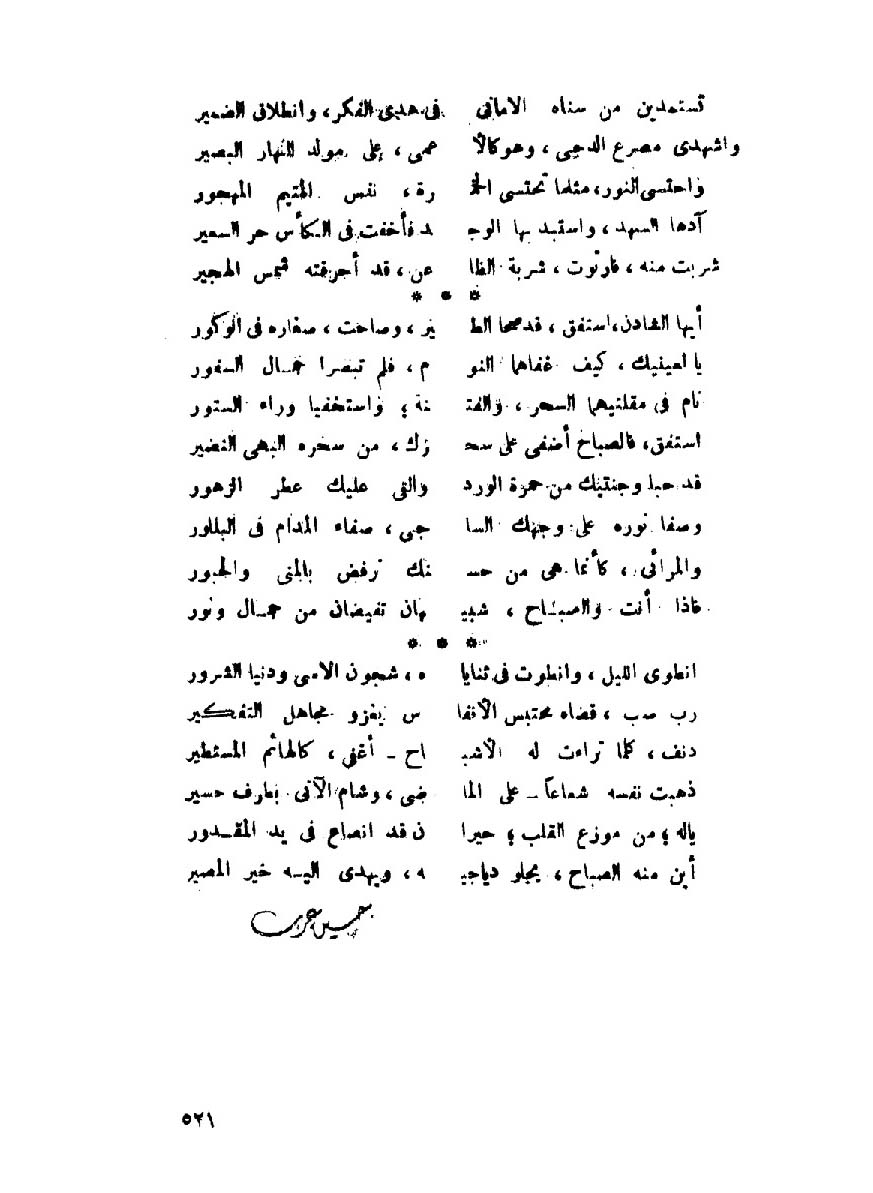 تستمدين من سناه الامانى فى هدى الفكر، وانطلاق الضمير
واشهدى مصرع الدجى، وهو كالأ عمى، على مولد النهار البصير
واحتسى النور، مثلما تحتسى الخمـ رة، نفس المتيم المهجور
آدها السهد، واستبد بها الوجـ ـد فأخفت فى الكأس حر السعير
شربت منه، فارتوت، شربة الظا عن، قد أحرقته شمس الهجير
* * *
أيها الشادن، استفق، قد صحا الطـ ـير، وصاحت، صغاره فى الوكور
يا لعينيك، كيف غفاهما النو م، فلم تبصرا جمال السفور
نام فى مقلتيهما السحر، والفتـ ـنة، واستخفيا وراء الستور
استفق، فالصباح أضفى على سحـ ـرك، من سحره البهى النضير
قد حبا وجنتيك من حمرة الورد والقى عليك عطر الزهور
وصفا نوره على وجهك السا جى، صفاء المدام فى البللور
والمرائى، كأنما هى من حسـ ـنك ترفض بالمنى والحبور
فاذا أنت والصباح، شبيـ ـهان تفيضان من جمال ونور
* * *
انطوى الليل، وانطوت فى ثنايا ه، شجون الاسى ودنيا الشرور
رب صب، قضاه محتبس الانفا س يغزو مجاهل التفكير
دنف، كلما تراءت له الأشبـ ـاح - أغفى، كالهائم المستطير
ذهبت نفسه شعاعاً - على الما ضى، وشام الآتى بطرف حسير
ياله، من موزع القلب، حيرا ن قد انصاع فى يد المقدور
أين منه الصباح، يجلو دياجيـ ـه، ويهدى اليه خير المصير
حسين عرب
٥٢١